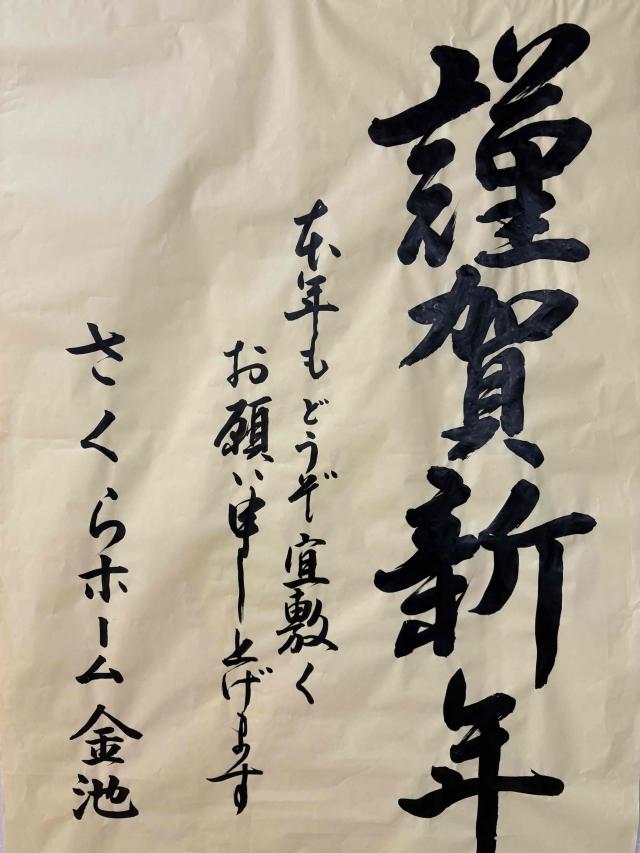 謹賀新年
本年もどうぞ宜敷く
お願い申し上げます
さくらホーム金池